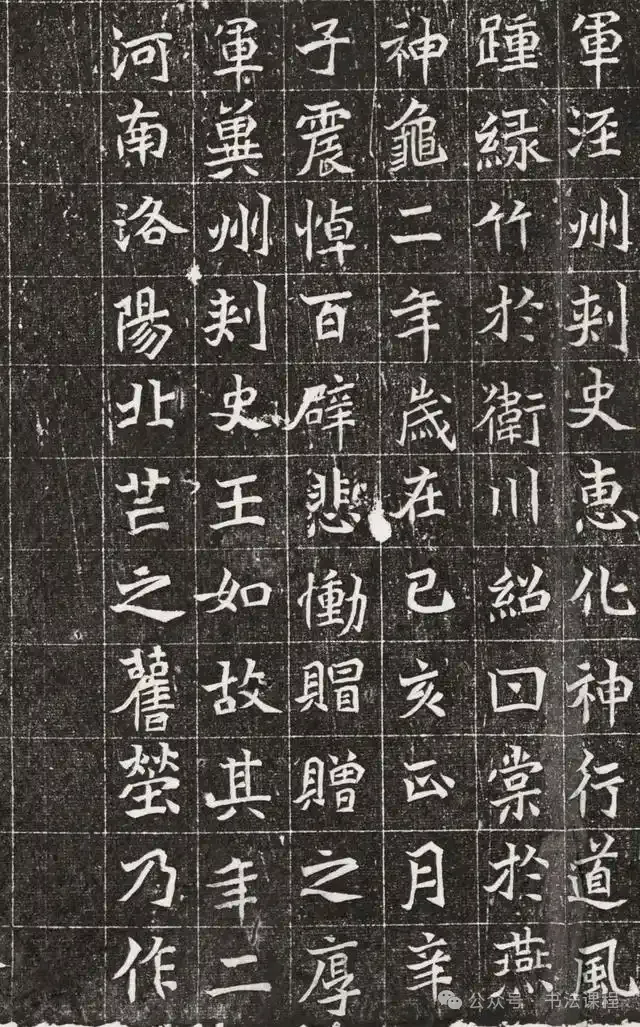 軍涇州刾史惠化神行道風
踵緑竹於衛川紹曰棠於燕
神龜二年歲在己亥正月辛
子震悼百辟悲慟賵贈之厚
軍冀州刾史王如故其年二
河南洛陽北芒之舊塋乃作
公众号·书法课程